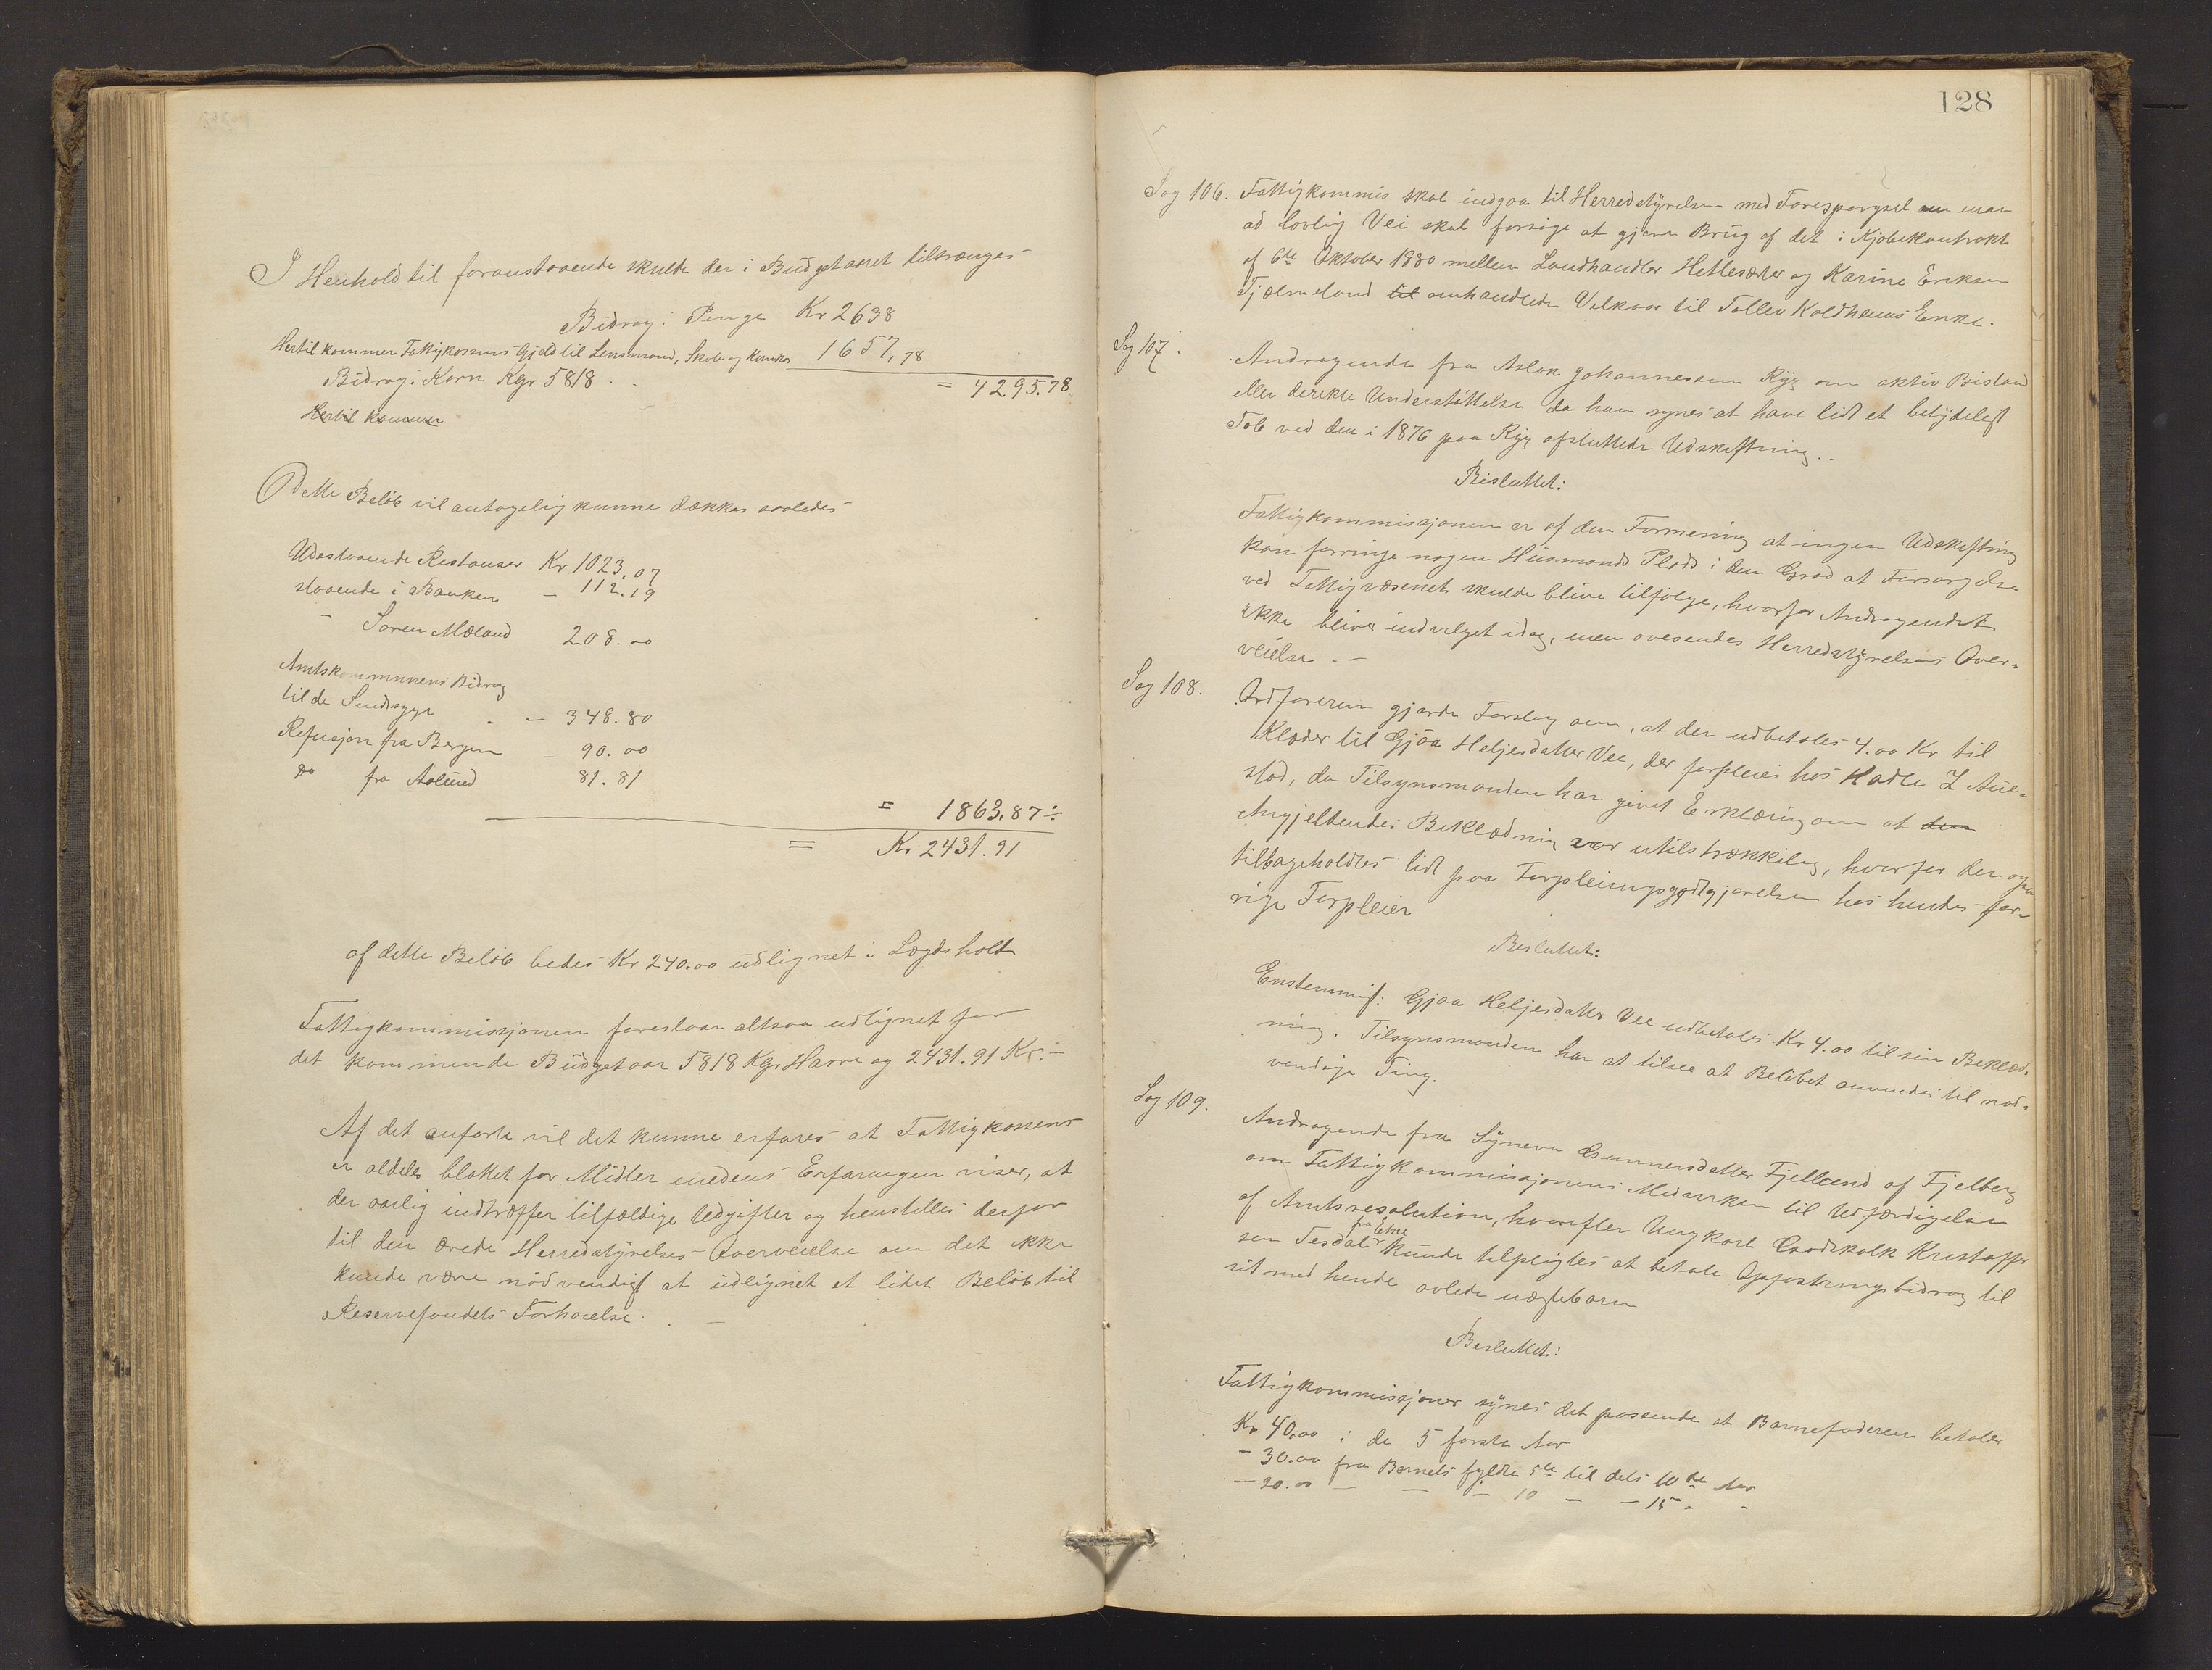 I Henhold til foranstaaende skulde der i Budgetaaret tiltrænges
Bidrag i Penge Kr 2638
Hertil kommer Fattigkassens Gjæld til Lensmand, Skole og 1657,78
= 4295.78
Bidrag i Korn Kgr 5818
Hertil kommer
Dette Beløb vil antagelig kunne dækkes saaledes
Udestaaende Restanser Kr 1023,07
staaende i Banken — 112.19
— Søren Mæland 208.00
Amtskommunens Bidrag
til de Sindssyge - — 348.80
Refusjon fra Bergen — 90.00
do fra Aalund 81.81
= 1863.87 ÷
= Kr 2431.91
af dette Beløb bedes Kr 240.00 udlignet i Lægdshold
Fattigkommissjonen foreslaar altsaa udlignet for
det kommende Budgetaar 5818 Kgr Havre og 2431.91 Kr. —
Af det anførte vil det kunne erfares at Fattigkassens
er aldeles blottet for Midler medens Erfaringen viser, at
der aarlig indtræffer tilfældige Udgifter og henstilles derfor
til den ærede Herredstyrelses Overveielse om det ikke
kunde være nødvendigt at udlignet et lidet Beløb til
Reservefondets Forhøielse. —
128
Sag 106. Fattigkommis skal indgaa til Herredstyrelsen med Forespørgsel om man
ad lovlig Vei skal forsøge at gjøre Brug af det i Kjøbekontrakt
af 6te Oktober 1880 mellem Landhandler Hetlesæter og Karine Eriksen
Tjælmeland til omhandlede Vilkaar til Tollev Koldheims Enke.
Sag 107. Andragende fra Aslak Johannesen Ryg om aktiv Bistand
eller direkte Understøttelse da han synes at have lidt et betydeligt
Tab ved den i 1876 paa Ryg afsluttede Udskiftning. —
Besluttet:
Fattigkommissjonen er af den Formening at ingen Udskiftning
kan forringe nogen Husmands Plads i den Grad at Forsørgelse
ved Fattigvæsenet skulde blive tilfølge, hvorfor Andragendet
ikke bliver indvilget idag, men oversendes Herredstyrelsens Over-
veielse. —
Sag 108. Ordføreren gjorde Forslag om, at der udbetales 4.00 Kr til
Klæder til Gjøa Heljesdatter Vee, der forpleies hos Hadle Z Aue-
stad, da Tilsynsmanden har givet Erklæring om at den
Angjeldendes Beklædning var utilstrækkelig, hvorfor der ogsaa
tilbageholdtes lidt paa Forpleiningsgodtgjørelsen hos hendes for-
rige Forpleier
Besluttet:
Enstemmigt: Gjøa Heljesdatter Vee udbetales Kr 4.00 til sin Beklæd-
ning. Tilsynsmanden har at tilsee at Beløbet anvendes til nød-
vendige Ting.
Sag 109. Andragende fra Synneva Gunnersdatter Fjelland af Fjelberg
om Fattigkommissjonens Medvirken til Udfærdigelse
af Amtsresolution, hvorefter Ungkarl Godskalk Kristoffer
sen Tesdal fra Etne kunde tilpligtes at betale Opfostringsbidrag til
sit med hende avlede uægtebarn
Besluttet:
Fattigkommissjonen synes det passende at Barnefaderen betaler
Kr 40.00 i de 5 første Aar
— 30.00 fra Barnets fyldte 5te til dets 10de Aar
— 20.00 — — — 10 — — 15 - -